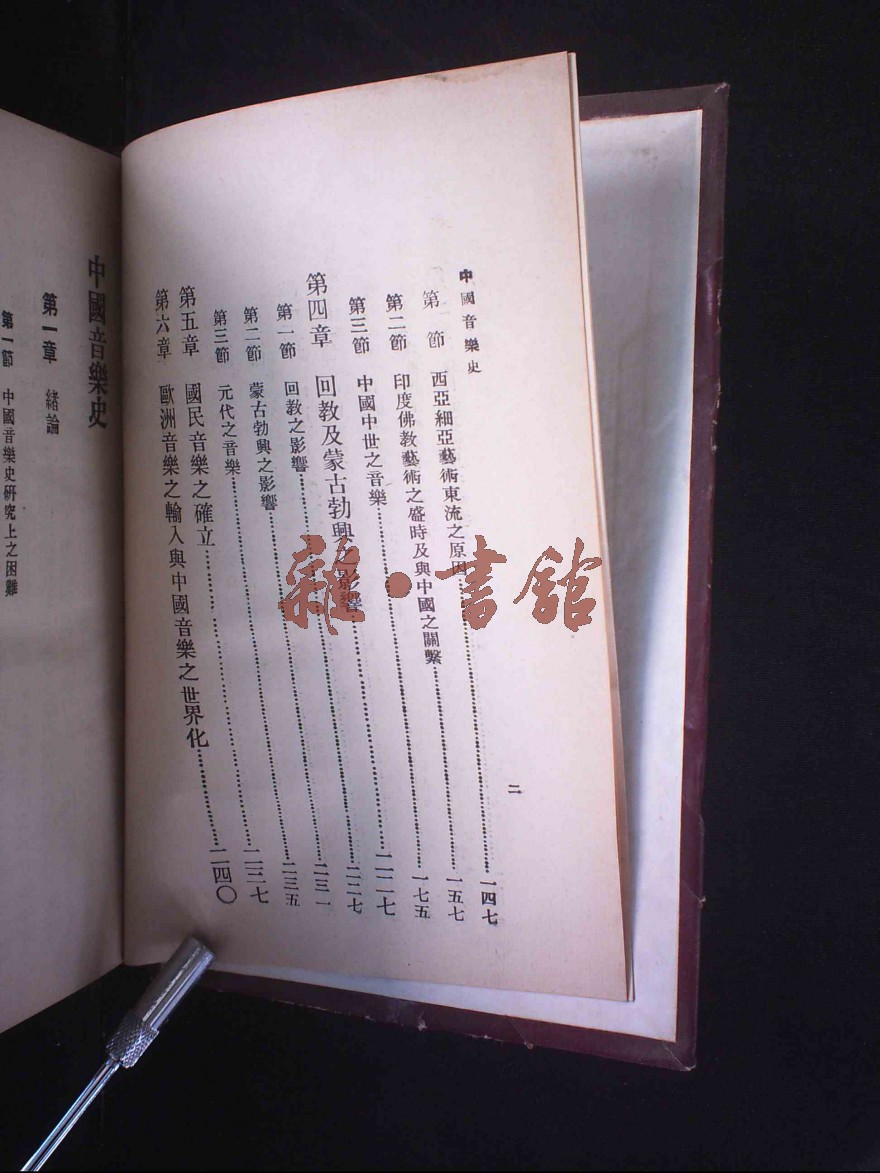 中國音樂史
第一節 西亞細亞藝術東流之原因……一四七
第二節 印度佛教藝術之盛時及與中國之關繫……一五七
第三節 中國中世之音樂……一七五
第四章 回教及蒙古勃興之影響……二二七
第一節 回教之影響……二二七
第二節 蒙古勃興之影響……二三一
第三節 元代之音樂……二三五
第五章 國民音樂之確立……二三七
第六章 歐洲音樂之輸入與中國音樂之世界化……二四〇
二
中國音樂史
第一章 緒論
第一節 中國音樂史研究上之困難
雜·書館